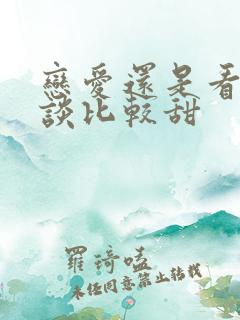 戀愛還是看
談比較甜
羅琦嗑
未經同意禁止轉載